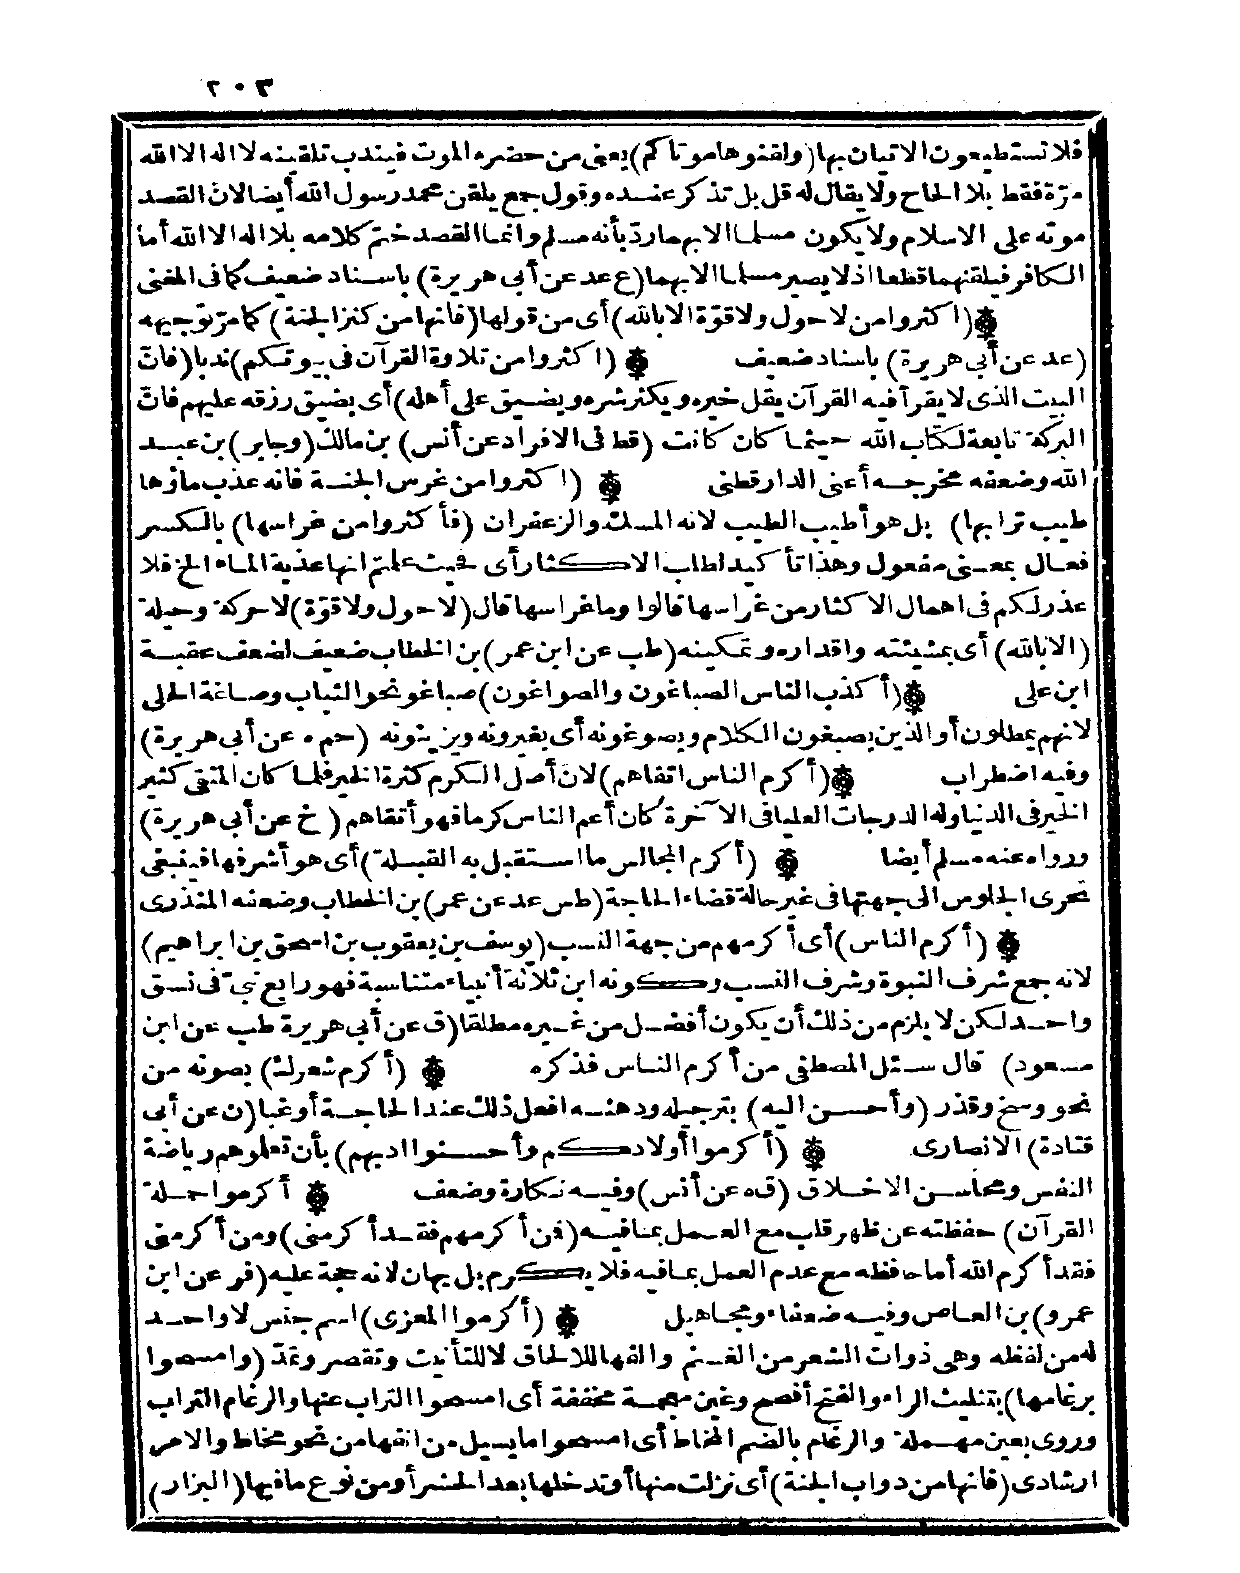 ٢٠٣
فلا تستطيعون الاتيان بها (ولقنوها موتاكم) يعنى من حضره الموت فيندب تلقينه لا اله الا الله
مرّة فقط بلا الحاح ولا يقال له قل بل تذكر عنده وقول جمع يلقن محمد رسول الله أيضا لانّ القصد
موته على الاسلام ولا يكون مسلما الا بهما ردّ بأنه مسلم وانما القصد ختم كلامه بلا اله الا الله أما
الكافر فيلقنهما قطعا اذ لا يصير مسلما الا بهما (ع عد عن أبى هريرة) باسناد ضعيف كما فى المغنى
(اكثروا من لا حول ولا قوّة الا بالله) أى من قولها (فانها من كنز الجنة) كما مرّ توجيهه
(عد عن أبى هريرة) باسناد ضعيف (اكثروا من تلاوة القرآن فى بيوتكم) ندبا (فانّ
البيت الذى لا يقرأ فيه القرآن يقل خيره ويكثر شره ويضيق على أهله) أى يضيق رزقه عليهم فانّ
البركة تابعة لكتاب الله حيثما كان كانت (قط فى الافراد عن أنس) بن مالك (وجابر) بن عبد
الله وضعفه مخرجه أعنى الدارقطنى (اكثروا من غرس الجنة فانه عذب ماؤها
طيب ترابها) بل هو أطيب الطيب لانه المسك والزعفران (فأكثروا من غراسها) بالكسر
فعال بمعنى مفعول وهذا تأكيد لطلب الاكثار أى فحيث علمتم انها عذبة الماء الخ فلا
عذر لكم فى اهمال الاكثار من غراسها قالوا وما غراسها قال (لا حول ولا قوّة) لا حركة وحيلة
(الا بالله) أى بمشيئته واقداره وتمكينه (طب عن ابن عمر) بن الخطاب ضعيف لضعف عقبة
ابن على (أكذب الناس الصباغون والصواغون) صباغو نحو الثياب وصاغة الحلى
لانهم يمطلون أو الذين يصبغون الكلام ويصوغونه أى يغيرونه ويزينونه (حم ه عن أبى هريرة)
وفيه اضطراب (أكرم الناس اتقاهم) لان أصل الكرم كثرة الخير فلما كان المتقى كثير
الخير فى الدنيا وله الدرجات العليا فى الآخرة كان أعم الناس كرما فهو أتقاهم (خ عن أبى هريرة)
ورواه عنه مسلم أيضا (أكرم المجالس ما استقبل به القبلة) أى هو أشرفها فينبغى
تحرى الجلوس الى جهتها فى غير حالة قضاء الحاجة (طس عد عن عمر) بن الخطاب وضعفه المنذرى
(أكرم الناس) أى أكرمهم من جهة النسب (يوسف بن يعقوب بن اسحق بن ابراهيم)
لانه جمع شرف النبوة وشرف النسب وكونه ابن ثلاثة أنبياء متناسبة فهو رابع نبىّ فى نسق
واحد لكن لا يلزم من ذلك أن يكون أفضل من غيره مطلقا (ق عن أبى هريرة طب عن ابن
مسعود) قال سئل المصطفى من أكرم الناس فذكره (أكرم شعرك) بصونه من
نحو وسخ وقذر (وأحسن اليه) بترجيله ودهنه افعل ذلك عند الحاجة أو غبا (ن عن أبى
قتادة) الانصارى (أكرموا أولادكم وأحسنوا ادبهم) بأن تعلموهم رياضة
النفس ومحاسن الاخلاق (ق ه عن أنس) وفيه نكارة وضعف أكرموا حملة
القرآن) حفظته عن ظهر قلب مع العمل بما فيه (فن أكرمهم فقد أكرمنى) ومن أكرمنى
فقد أكرم الله أما حافظه مع عدم العمل بما فيه فلا يكرم بل يهان لانه حجة عليه (فر عن ابن
عمرو) بن العاص وفيه ضعفاء ومجاهيل (أكرموا المعزى) اسم جنس لا واحد
له من لفظه وهى ذوات الشعر من الغنم والفها للالحاق لا للتأنيث وتقصر وتمدّ (وامسحوا
برغامها) بتثليث الراء والفتح أفصح وغين معجمة مخففة أى امسحوا التراب عنها والرغام التراب
وروى بعين مهملة والرغام بالضم المخاط أى امسحوا ما يسيل من انفها من نحو مخاط والامر
ارشادى (فانها من دواب الجنة) أى نزلت منها أو تدخلها بعد الحشر أو من نوع ما فيها (البزار)